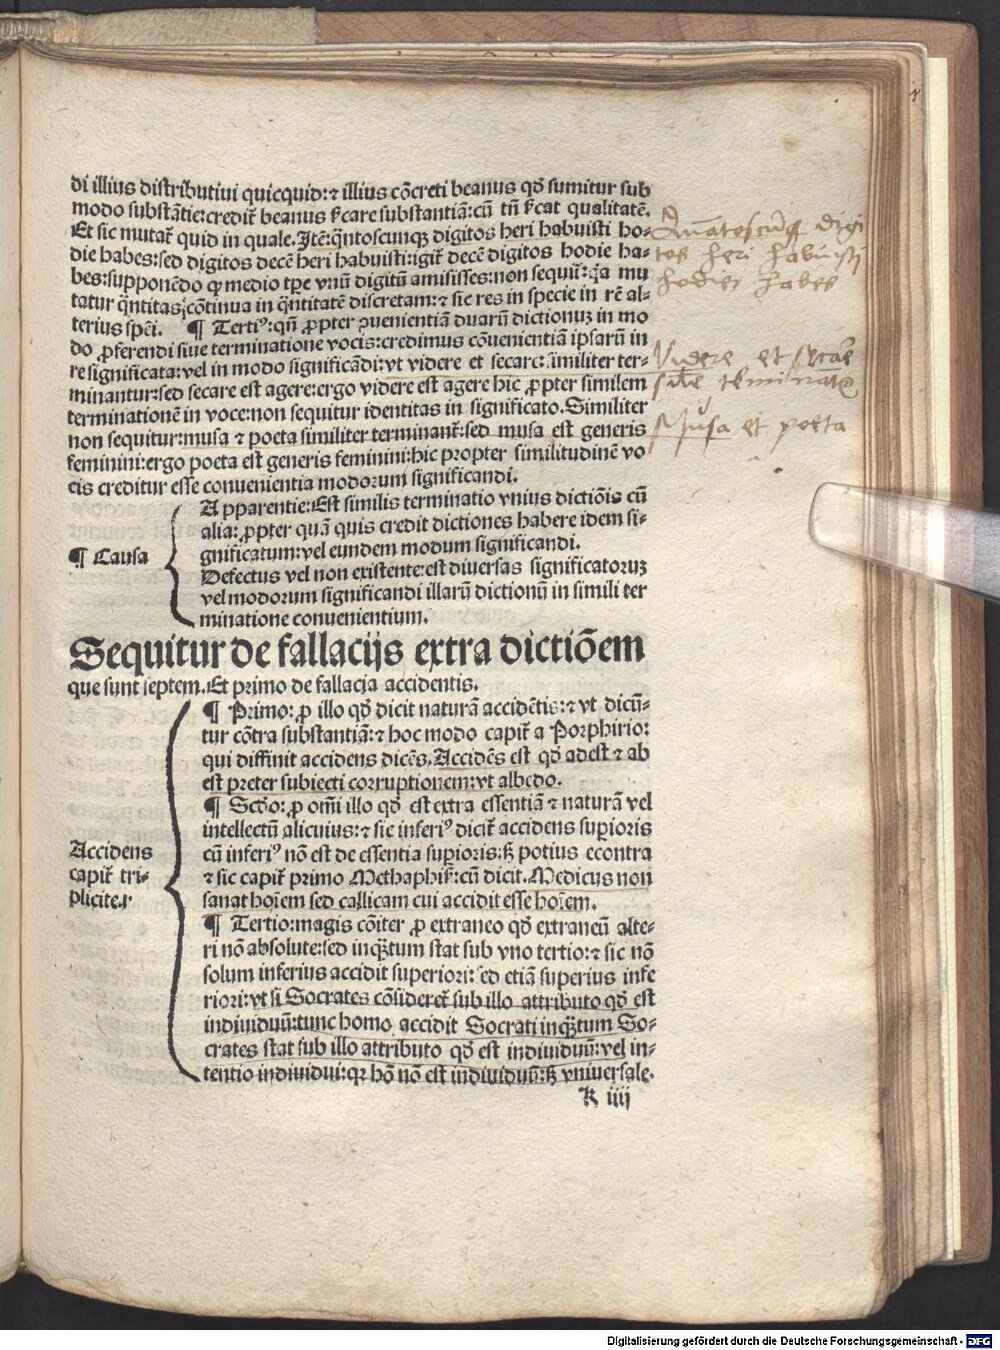 di illius distributiui quicquid:⁊ illius cōcreti beanus qđ sumitur sub
modo substātie:credit̄ beanus ſ̄care substantiā:cū tn̄ ſ̄cat qualitatē.
Et sic mutat̄ quid in quale.Itē:q̄ntoscunqꝫ digitos heri habuisti ho-
die habes:sed digitos decē heri habuisti:igit̄ decē digitos hodie ha-
bes:supponēdo ꝙ medio tꝑe vnū digitū amisisses:non sequit̄:q̄a mu
tatur q̄ntitas cōtinua in q̄ntitatē discretam:⁊ sic res in specie in rē al-
terius spēi. ¶ Tertiꝰ:qn̄ ꝓpter ꝯuenientiā duarū dictionuꝫ in mo
do ꝓferendi siue terminatione vocis:credimus cōuenientiā ipsarū in
re significata:vel in modo significādi:vt videre et secare similiter ter-
minantur:sed secare est agere:ergo videre est agere hic ꝓpter similem
terminationē in voce:non sequitur identitas in significato.Similiter
non sequitur:musa ⁊ poeta similiter terminant̄:sed musa est generis
feminini:ergo poeta est generis feminini:hic propter similitudinē vo
cis creditur esse conuenientia modorum significandi.
¶ Causa
Apparentie:Est similis terminatio vnius dictiōis cū
alia:ꝓpter quā quis credit dictiones habere idem si-
gnificatum:vel eundem modum significandi.
Defectus vel non existentie:est diuersas significatoruꝫ
vel modorum significandi illarū dictionū in simili ter
minatione conuenientium.
Sequitur de fallacijs extra dictiōem
que sunt septem.Et primo de fallacia accidentis.
Accidens
capit̄ tri-
pliciter
¶ Primo:ꝓ illo qđ dicit naturā accidētis:⁊ vt dicū-
tur cōtra substantiā:⁊ hoc modo capit̄ a Porphirio:
qui diffinit accidens dicēs.Accidēs est qđ adest ⁊ ab
est preter subiecti corruptionem:vt albedo.
¶ Scđo:ꝓ om̄i illo qđ est extra essentiā ⁊ naturā vel
intellectū alicuius:⁊ sic inferiꝰ dicit̄ accidens supioris
cū inferiꝰ nō est de essentia supioris:ſꝫ potius econtra
⁊ sic capit̄ primo Methaphiſ̄:cū dicit.Medicus non
sanat hoīem sed calliam cui accidit esse hoīem.
¶ Tertio:magis cōiter ꝓ extraneo qđ extraneū alte-
ri nō absolute:sed inqꝫtum stat sub vno tertio:⁊ sic nō
solum inferius accidit superiori:sed etiā superius infe
riori:vt si Socrates cōsideret̄ sub illo attributo qđ est
indiuiduū:tunc homo accidit Socrati inqꝫtum So-
crates stat sub illo attributo qđ est indiuiduū:vel in-
tentio indiuidui:qꝛ hō nō est indiuiduū:ſꝫ vniuersale.
K iiij
Quātoscūqꝫ digi
tos heri habuisti
hodie habes
Videre et secare
sīle terminatōe
Musa et poeta
Digitalisierung gefördert durch die Deutsche Forschungsgemeinschaft - DFG